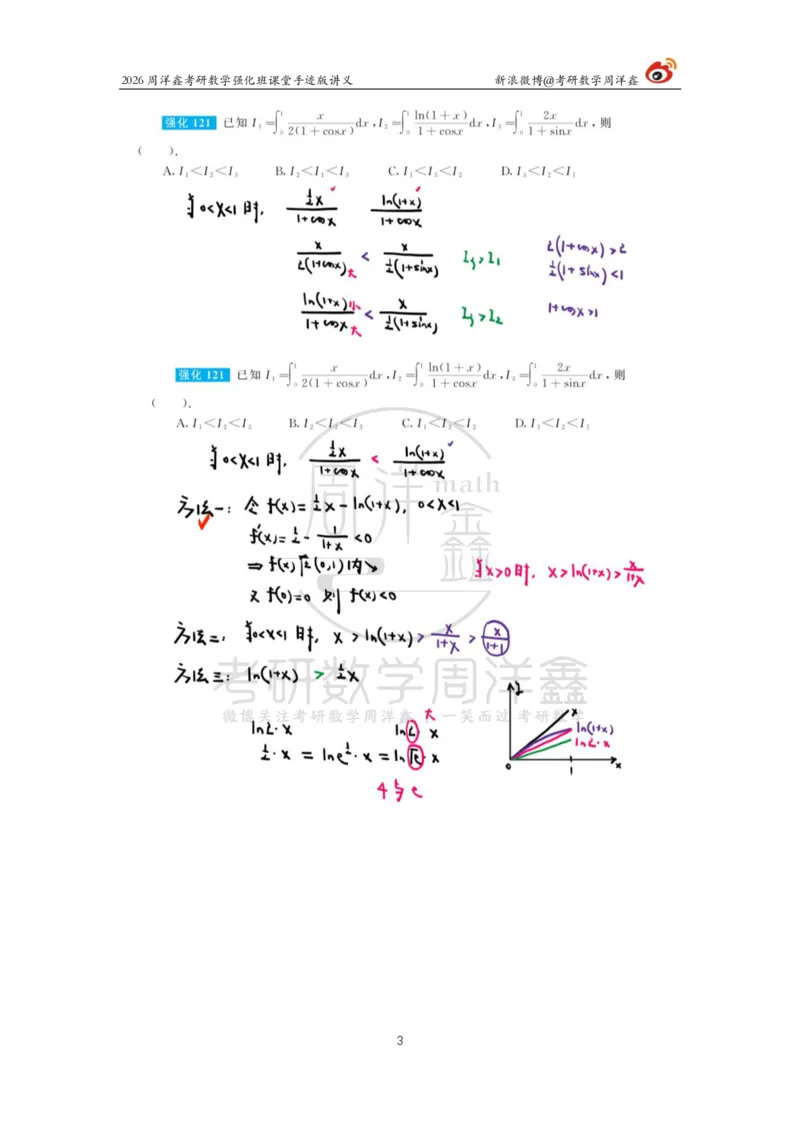 2026 周洋鑫考研数学强化班课堂手迹版讲义 新浪微博@考研数学周洋鑫
强化 121 已知 I₁=∫₀¹ x/(2(1+cosx)) dx, I₂=∫₀¹ ln(1+x)/(1+cosx) dx, I₃=∫₀¹ 2x/(1+sinx) dx, 则
( ).
A. I₁<I₂<I₃ B. I₂<I₁<I₃ C. I₁<I₃<I₂ D. I₃<I₂<I₁
当 0<x<1 时, ½x/(1+cosx) ln(1+x)/(1+cosx)
x/(2(1+cosx)) 大 < x/(½(1+sinx)) I₃>I₁ 2(1+cosx)>2
½(1+sinx)<1
ln(1+x) 小/(1+cosx) 大 < x/(½(1+sinx)) I₃>I₂ 1+cosx>1
强化 121 已知 I₁=∫₀¹ x/(2(1+cosx)) dx, I₂=∫₀¹ ln(1+x)/(1+cosx) dx, I₃=∫₀¹ 2x/(1+sinx) dx, 则
( ).
A. I₁<I₂<I₃ B. I₂<I₁<I₃ C. I₁<I₃<I₂ D. I₃<I₂<I₁
当 0<x<1 时, ½x/(1+cosx) < ln(1+x)/(1+cosx)
周洋鑫 math
方法一: 令 f(x)=½x-ln(1+x), 0<x<1
f'(x)=½-1/(1+x)<0
⇒ f(x) 在 (0,1) 内↘
当 x>0 时, x>ln(1+x)>x/(1+x)
又 f(0)=0 则 f(x)<0
方法二: 当 0<x<1 时, x>ln(1+x)>x/(1+x)>x/(1+1)
考研数学周洋鑫
方法三: ln(1+x) > ½x
微博关注考研数学周洋鑫 一笑而过 考研数学
ln2·x ln2 大 x
½·x = lne^½·x = ln√e·x
4与e
y x ln(1+x) ln2·x
0 1 x
3